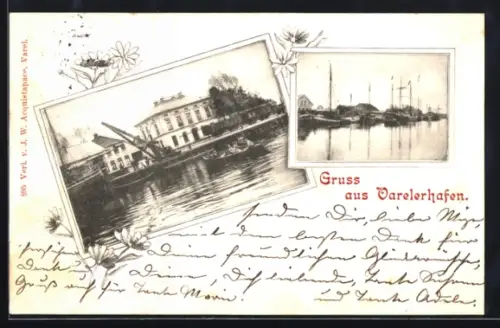 995 Verl. v. J. W. Acquistapace, Varel.
Gruss
aus Varelerhafen.
senden Dir, liebe
mit dem besten Dank für
Deine freundlichen Glückwünsche
Deine, Dich liebende, Tante
Gruß auch für Tante Marie.
und Tante Adele.